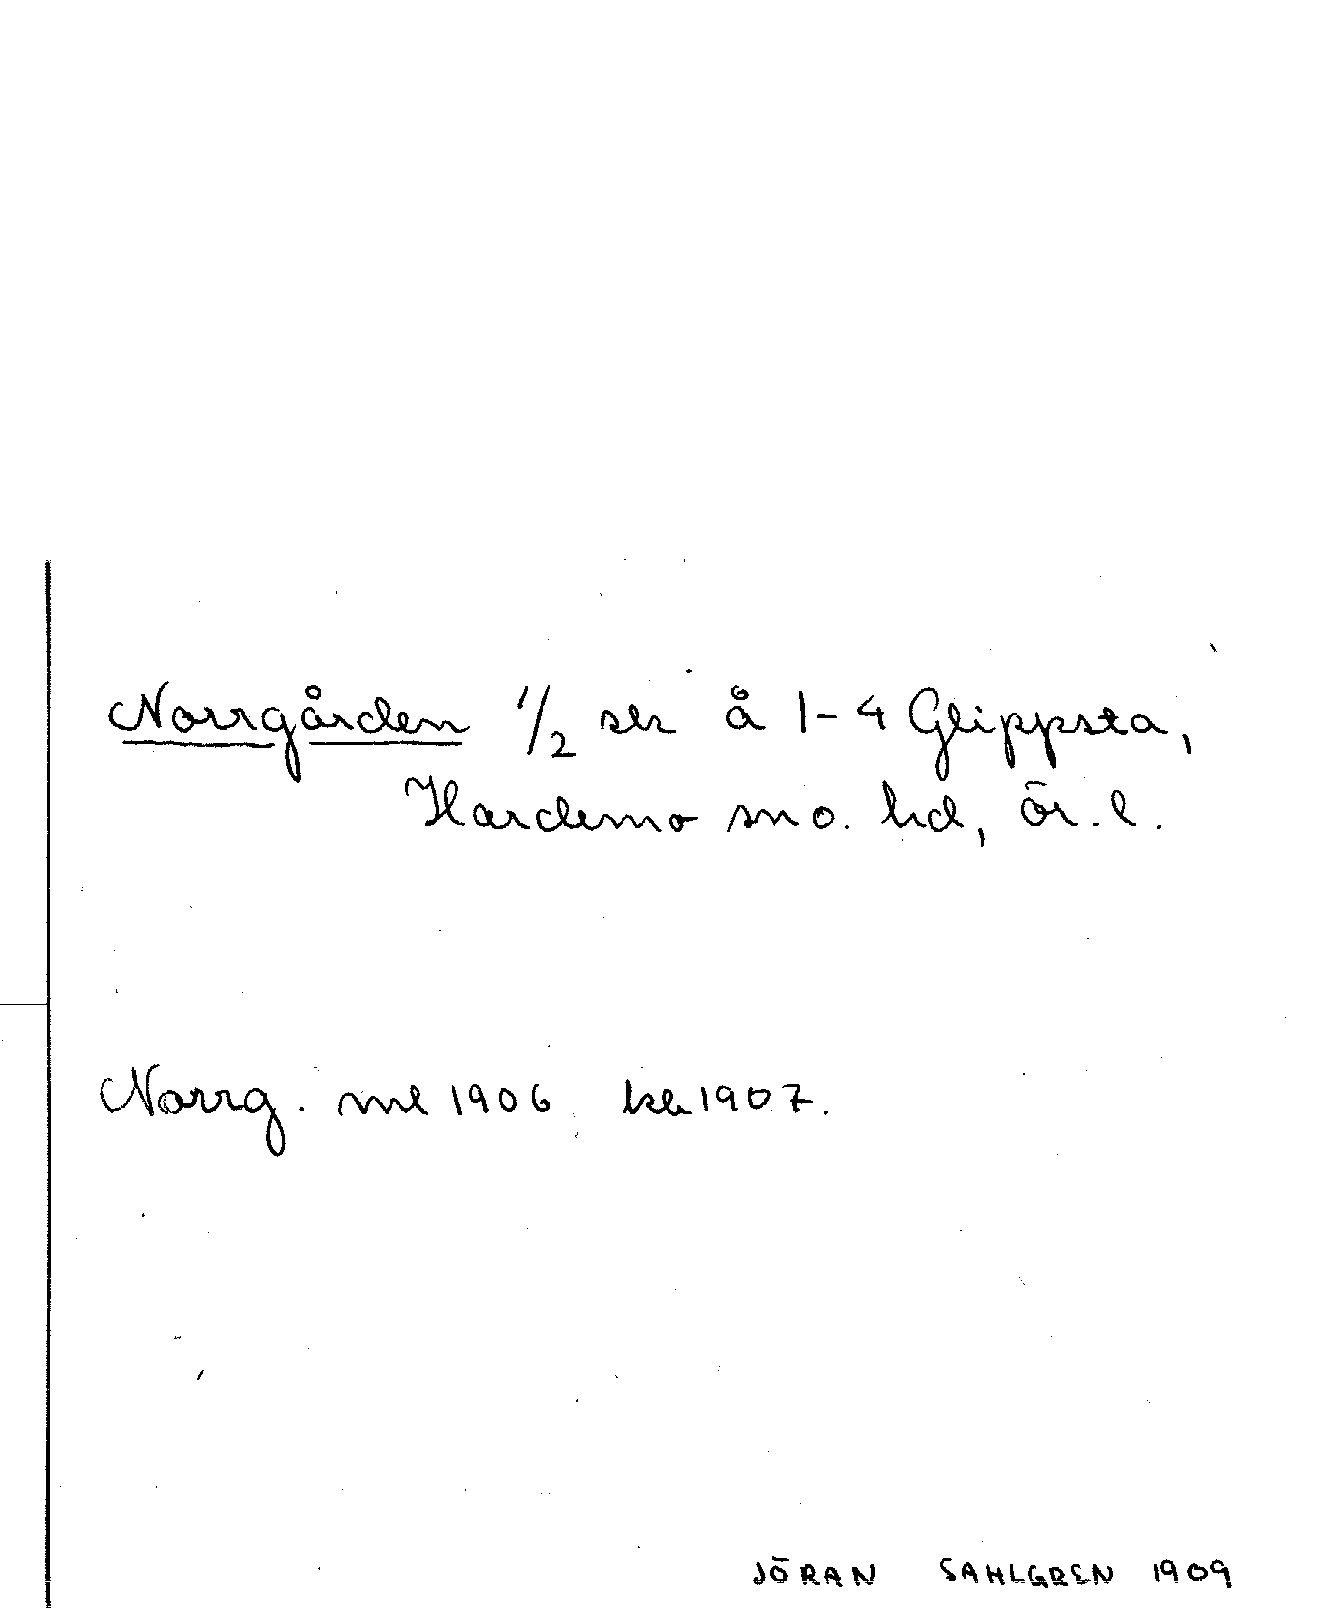 Norrgården 1/2 skr å 1-4 Glippsta,
Hardemo sn o. hd, ör. l.
Norrg. ml 1906 kb 1907.
JÖRAN SAHLGREN 1909